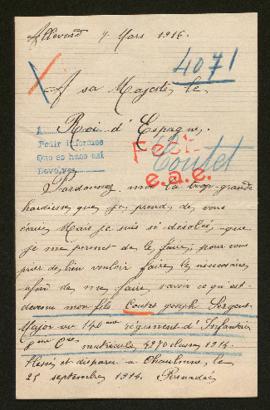 Allevard 7 Mars 1916.
4071
A sa Majesté le
Roi d'Espagne,
Pedir informes
Que se hace así
Devolver
Coutet
e.a.e.
Pardonnez moi la trop grande
hardiesse que je prends de vous
écrire Mais je suis si désolée que
je me permet de le faire, pour vous
prier de bien vouloir faire le nécessaire
afin de me faire savoir ce qu'est
devenu mon fils Coutet Joseph Sergent
Major au 140me régiment d'Infanterie
8me Cie matricule classe 1914.
Blessé et disparu à Chaulnes, le
25 septembre 1914.